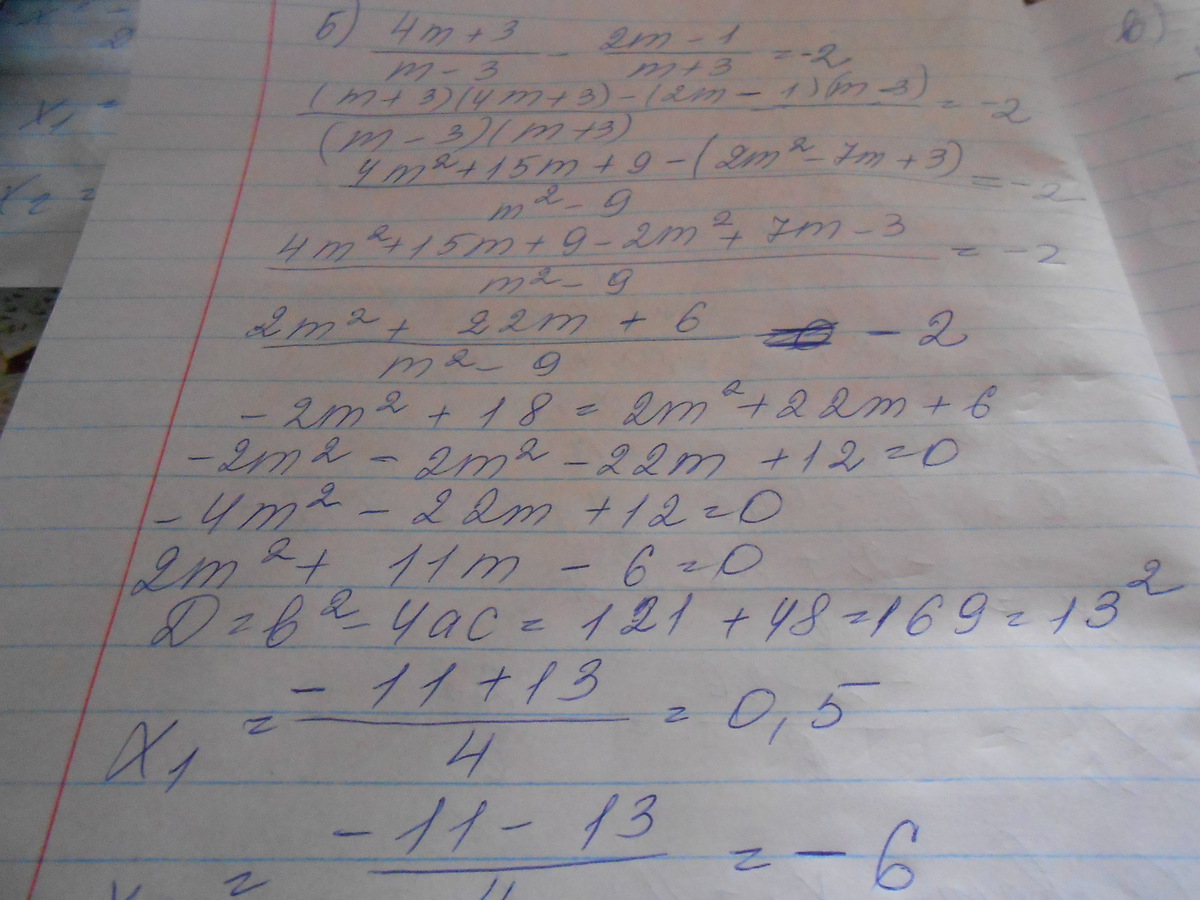 б) (4m+3)/(m-3) - (2m-1)/(m+3) = -2
((m+3)(4m+3)-(2m-1)(m-3))/((m-3)(m+3)) = -2
(4m²+15m+9-(2m²-7m+3))/(m²-9) = -2
(4m²+15m+9-2m²+7m-3)/(m²-9) = -2
(2m²+22m+6)/(m²-9) -2
-2m²+18=2m²+22m+6
-2m²-2m²-22m+12=0
-4m²-22m+12=0
2m²+11m-6=0
D=b²-4ac=121+48=169=13²
x₁ = (-11+13)/4 = 0,5
= (-11-13)/4 = -6
x₁ =
x₂ =
в)